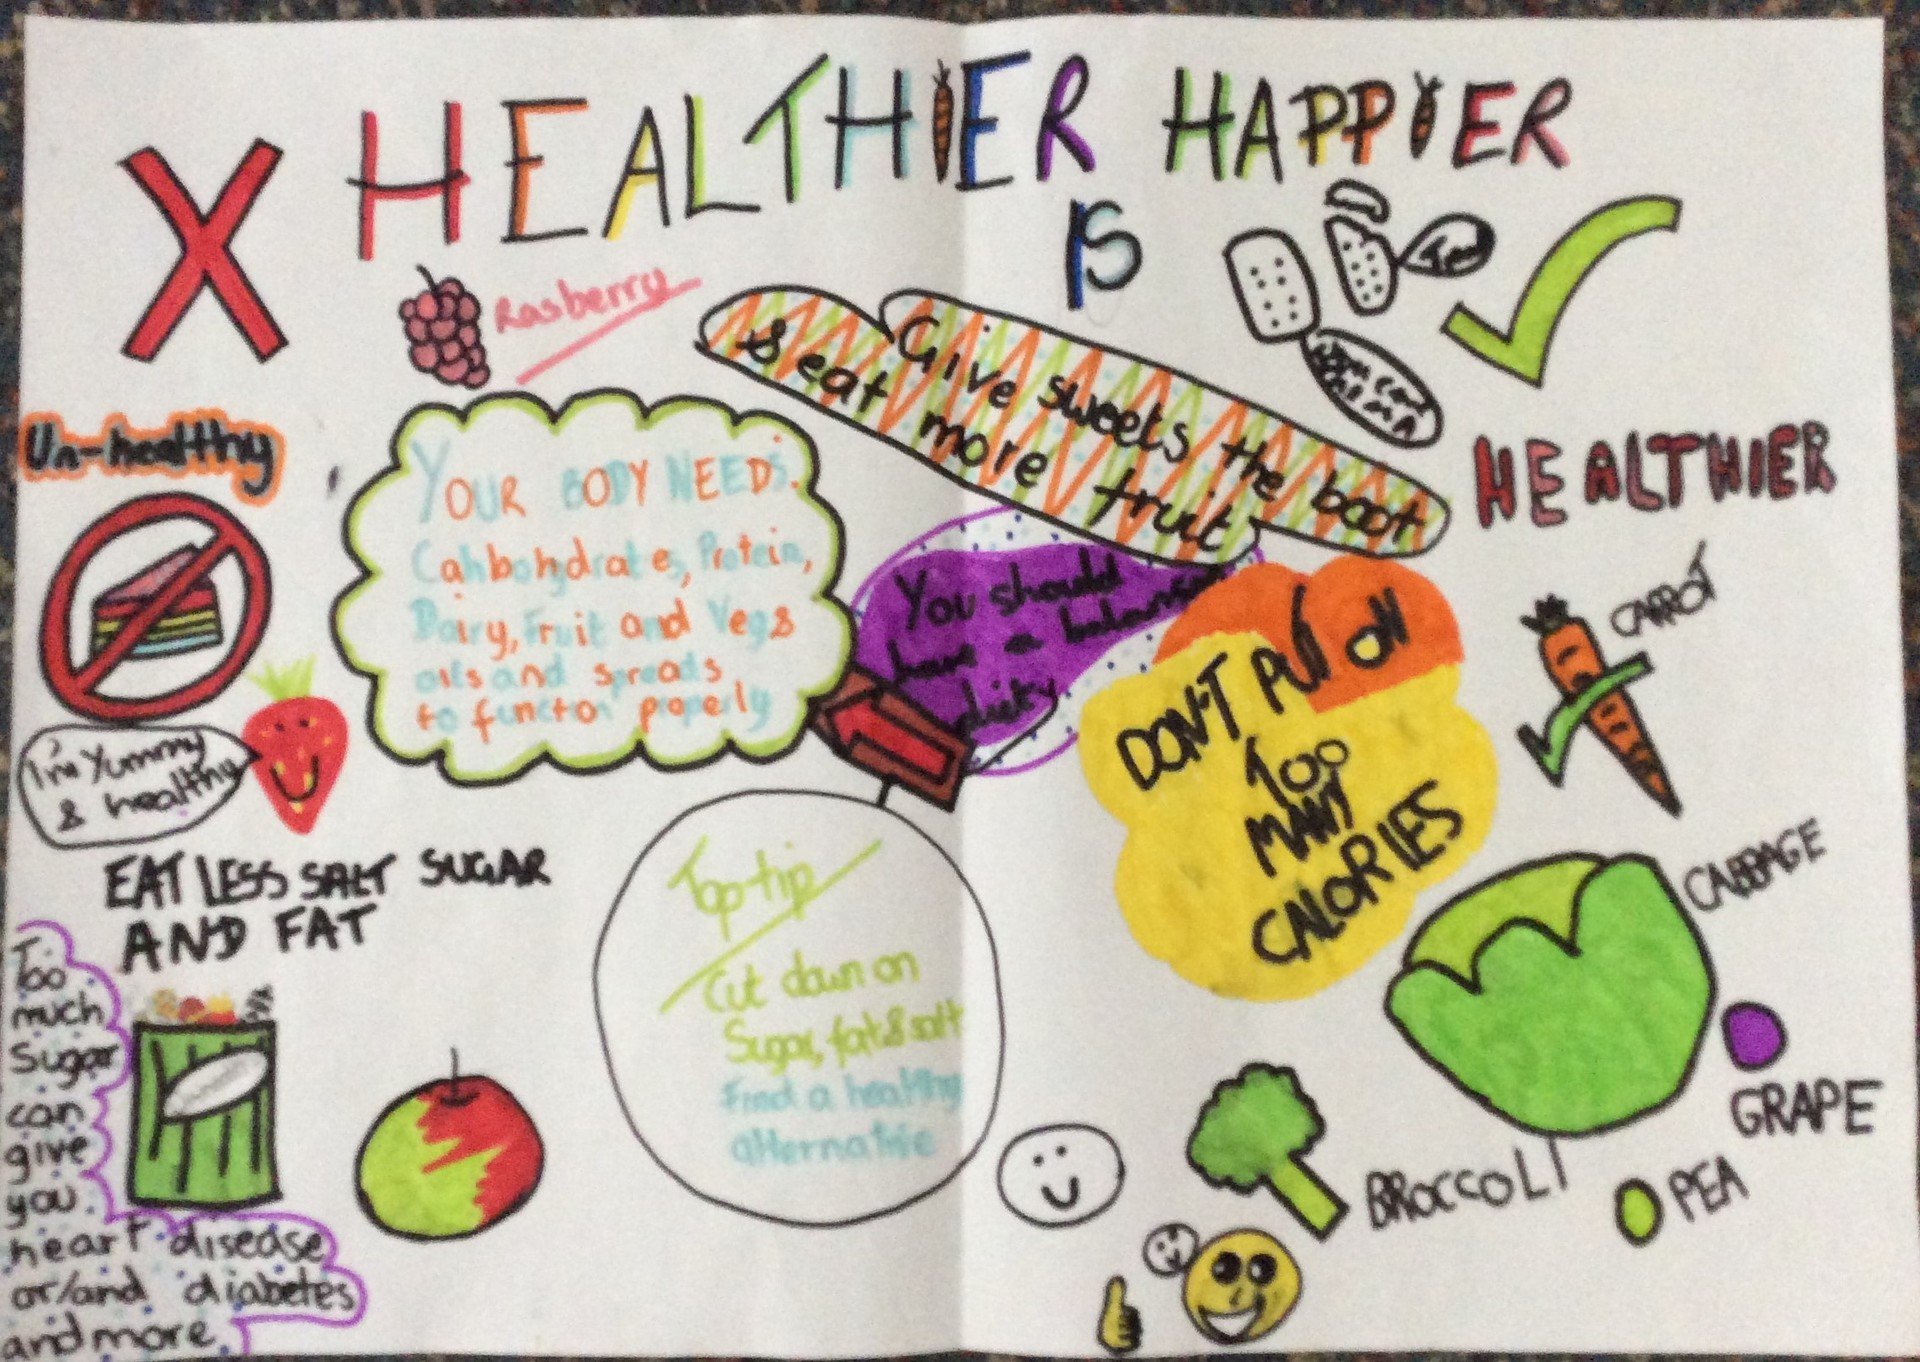 HEALTHIER HAPPIER
IS
Rasberry
Give sweets the boot
& eat more fruit
Un-healthy
HEALTHIER
YOUR BODY NEEDS.
Cahbohydrates, Protein,
Dairy, Fruit and Vegs
oils and spreads
to functon properly
You should
have a balanced
diet
DON'T PUT ON
TOO
MANY
CALORIES
CARROT
I'm Yummy
& healthy
EAT LESS SALT SUGAR
AND FAT
CABBAGE
Top tip
Cut down on
Sugar, fat & salt
Find a healthy
alternative
Too
much
Sugar
can
give
you
heart disease
or/and diabetes
and more.
GRAPE
BROCCOLI
PEA